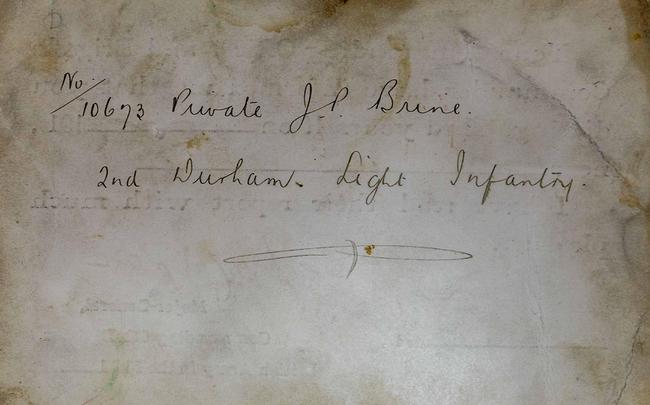 No/10673 Private J.P. Brine.
2nd Durham. Light Infantry.